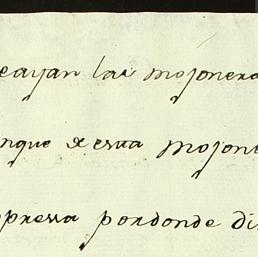 eayan las mojonera
nque desta mojone
xpressa pordonde di